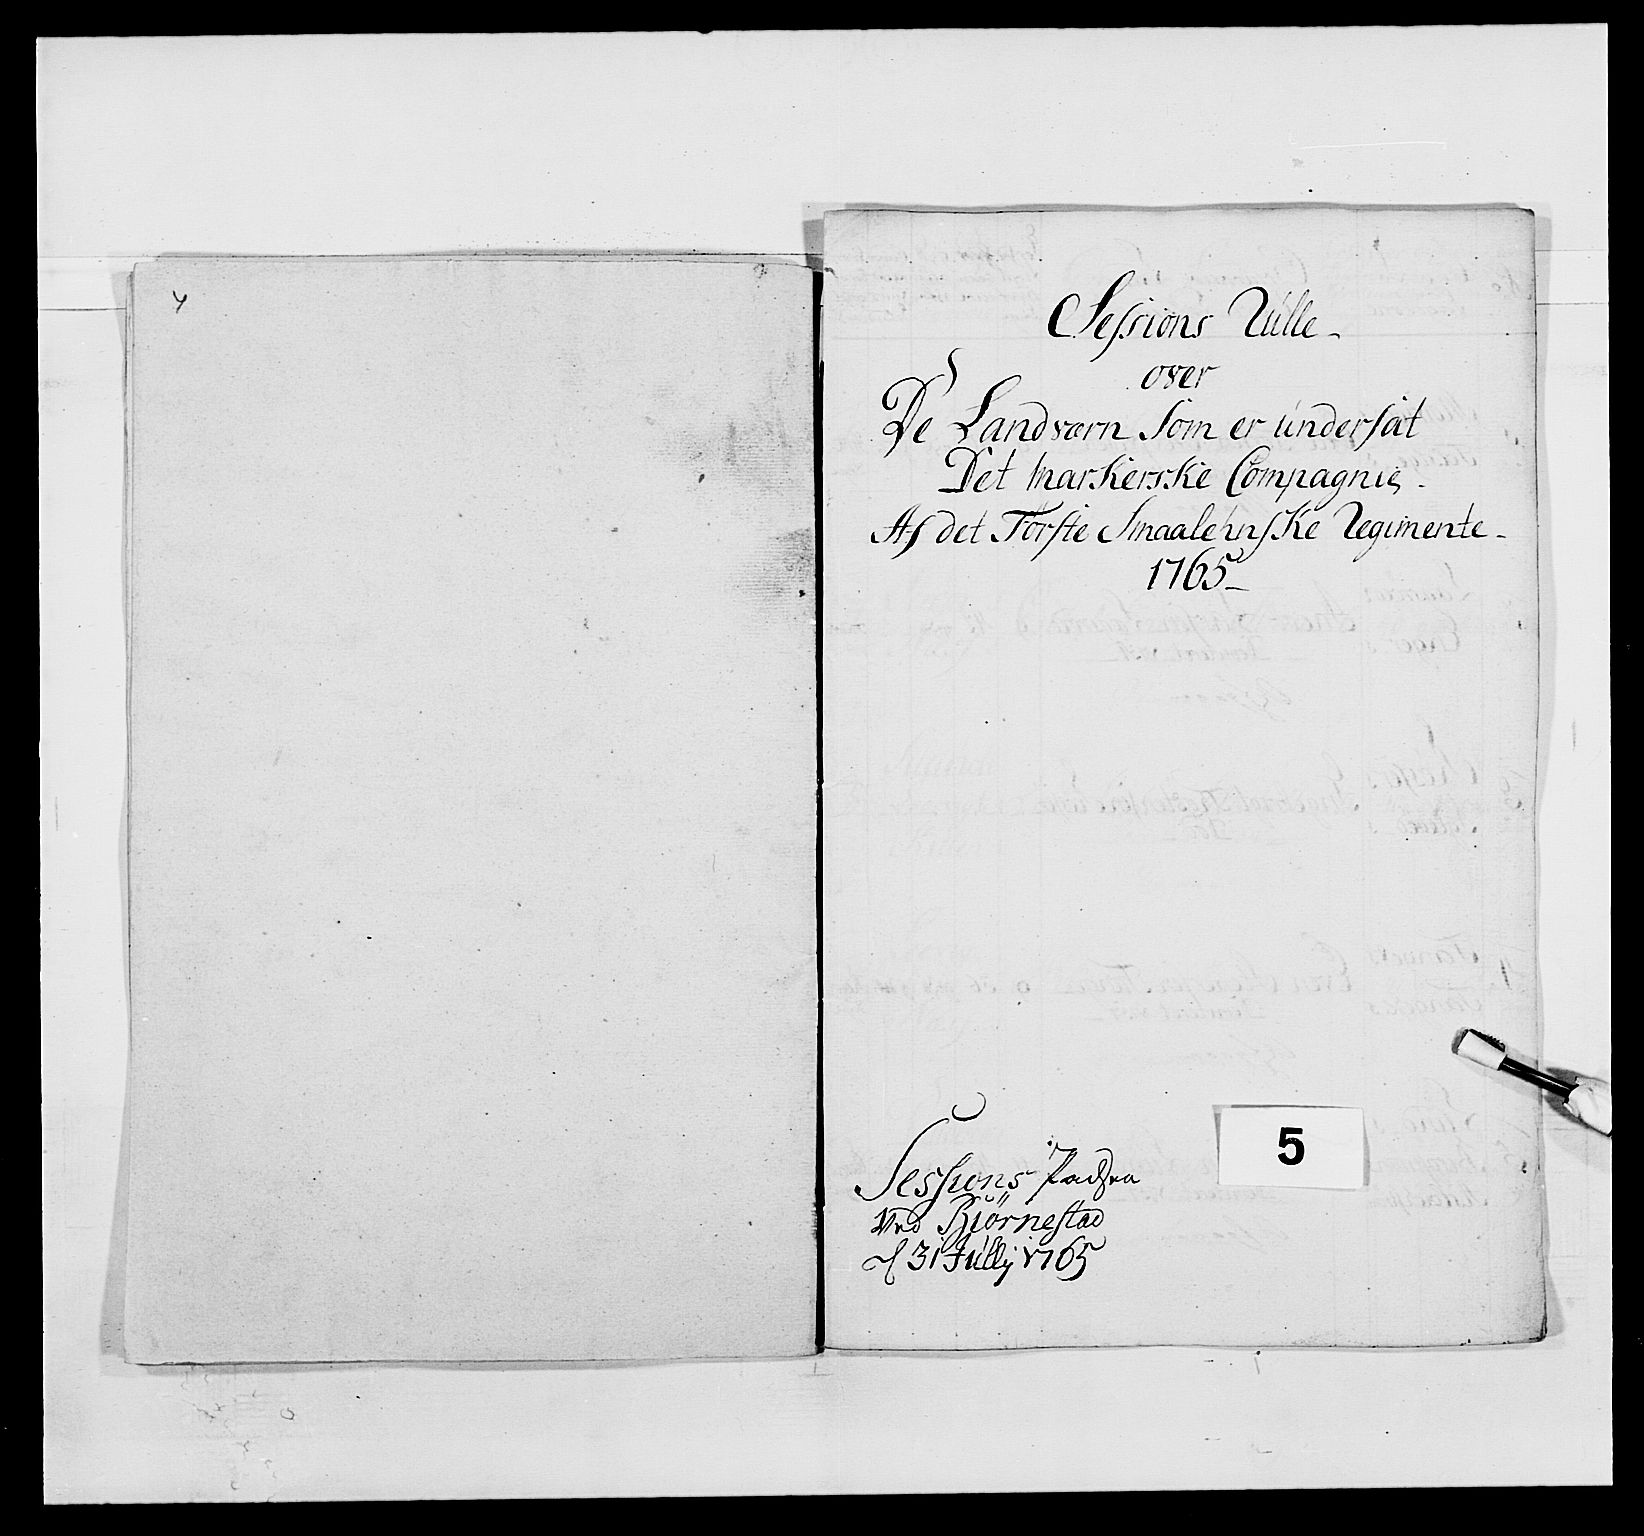 Sessions Rulle
over
De Landværn Som er undersat
Det Markerske Compagnie
Af det Förste Smaalehnske Regimente
1765
Sessions
ved Biörnestad
d 31 Jullij 1765
5